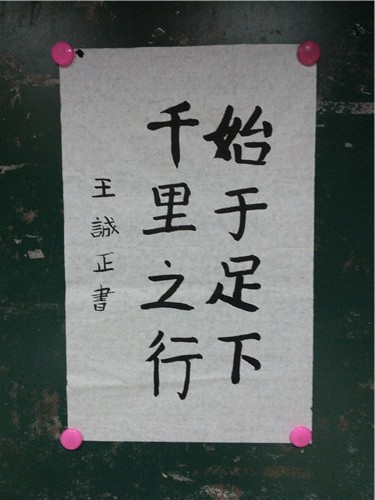 始于足下
千里之行
王誠正書